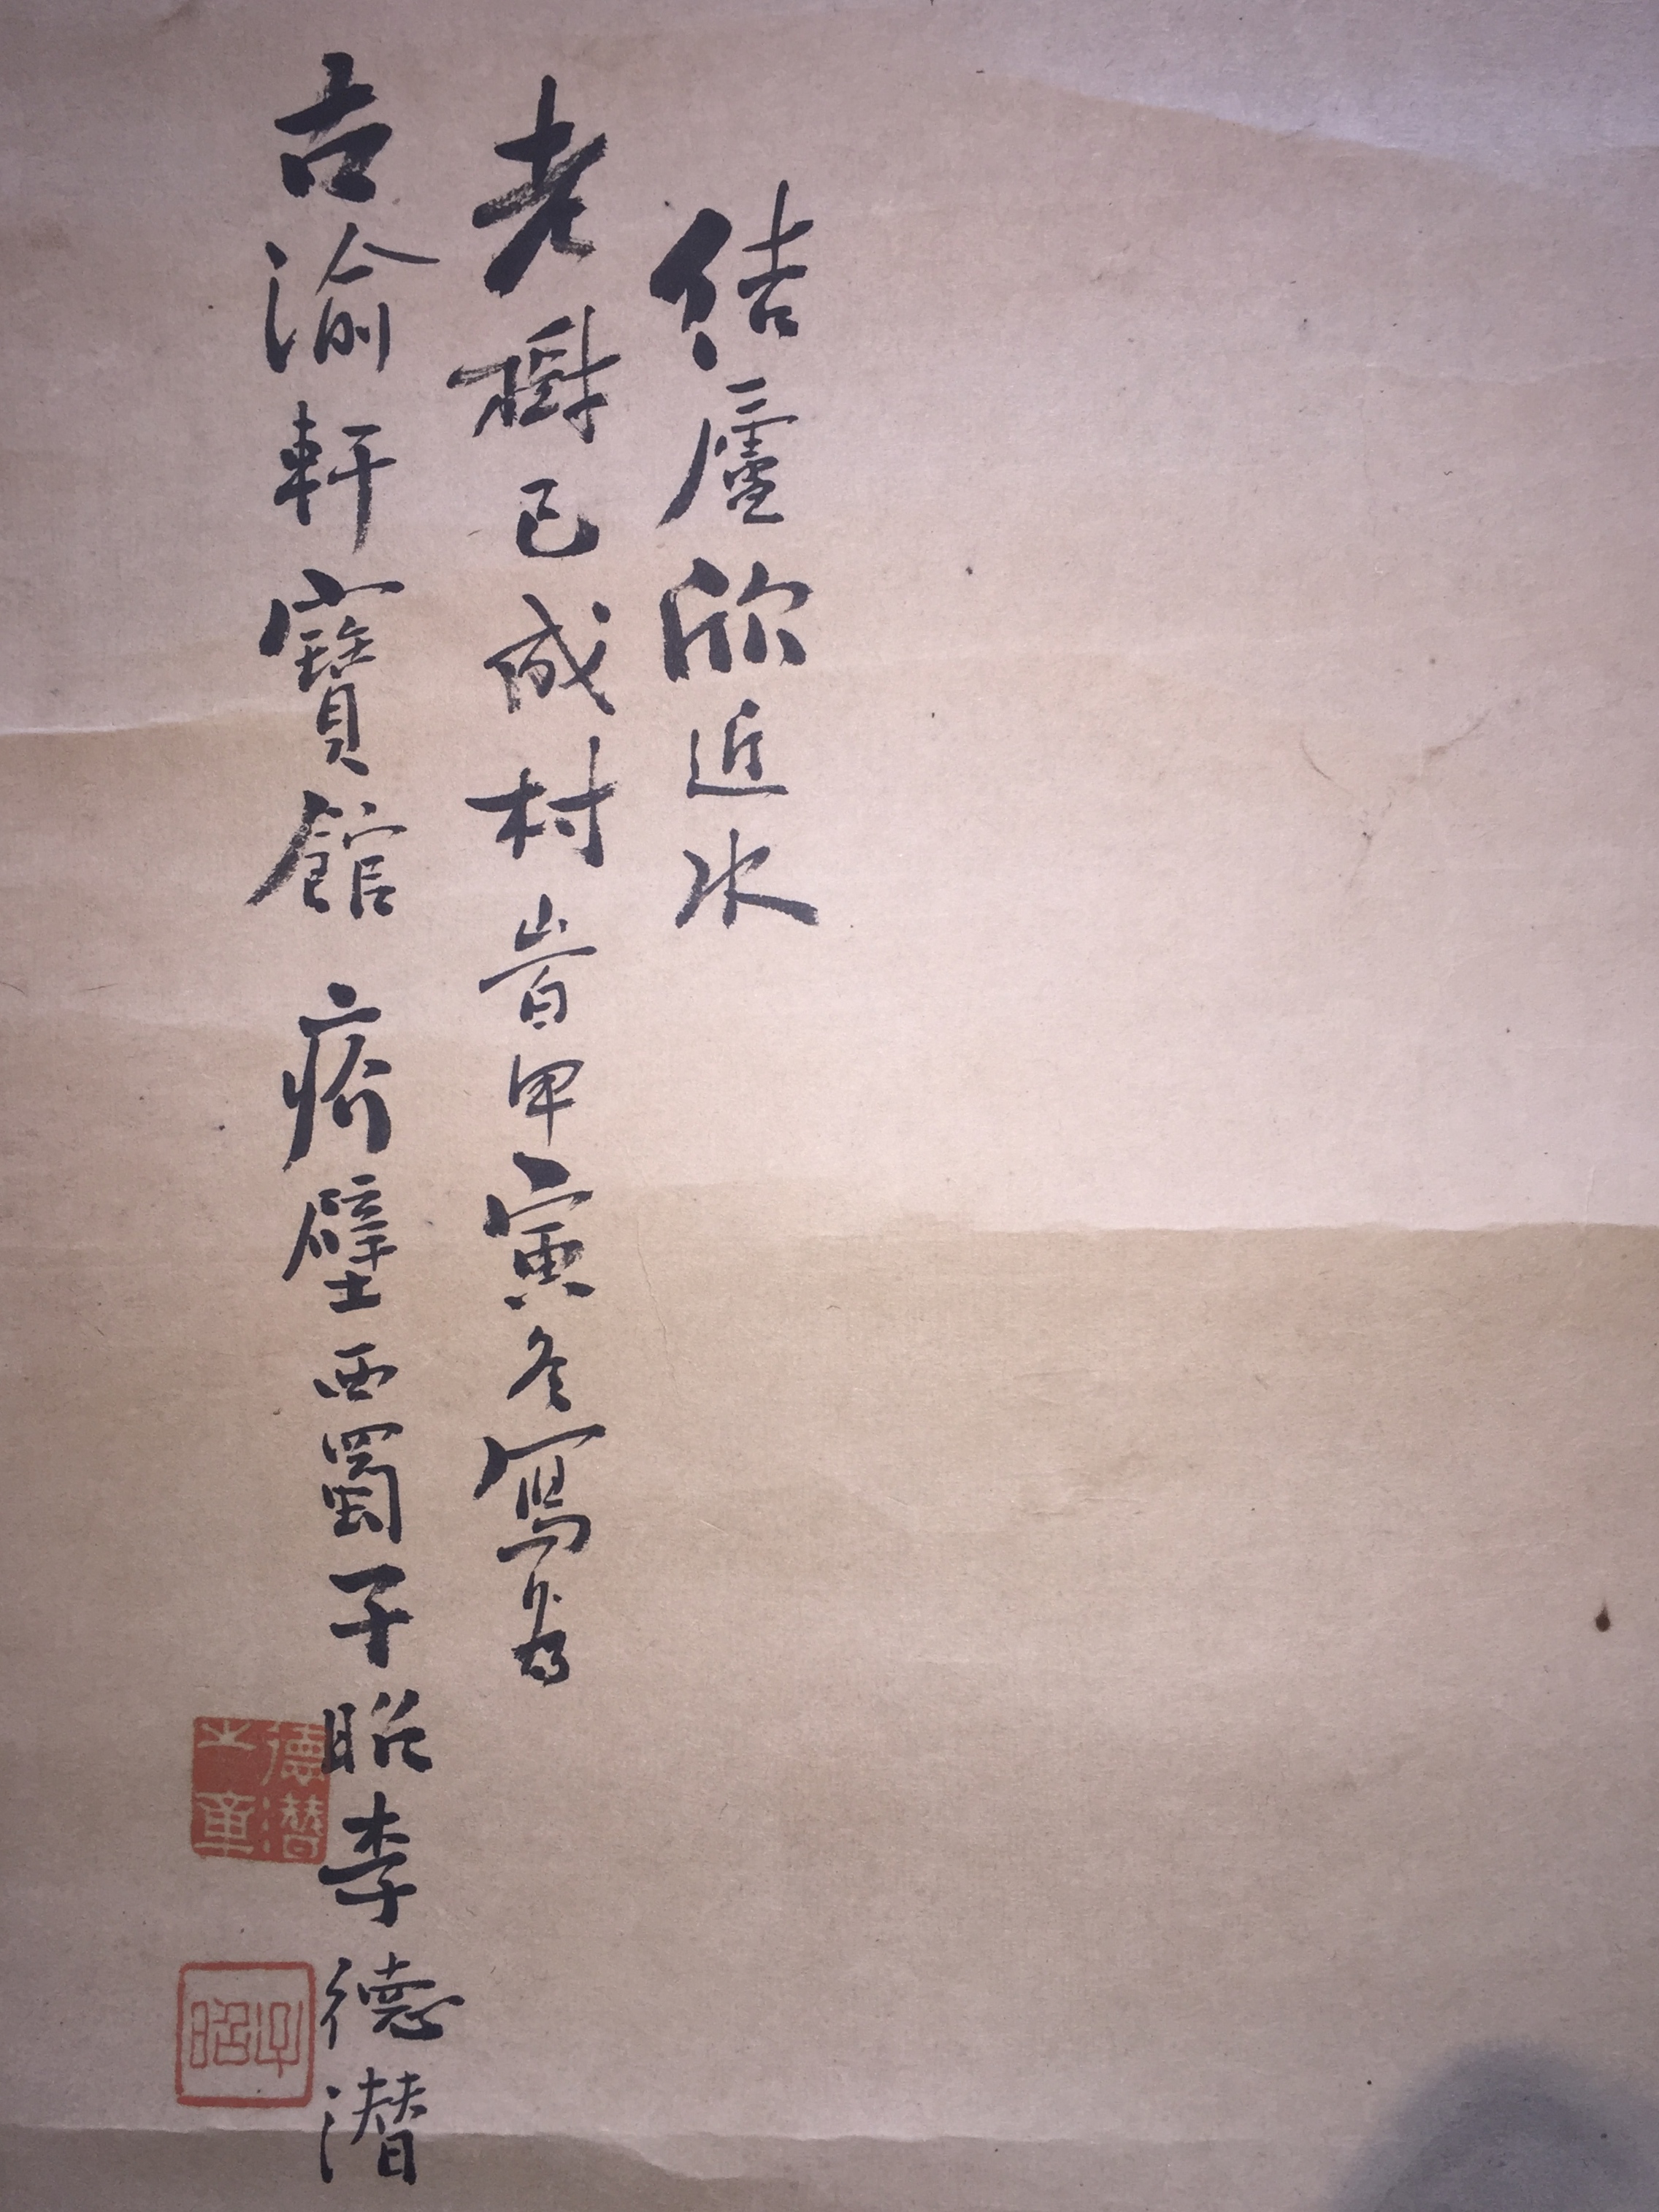 結廬欣近水
老樹已成村 旹甲寅冬寫為
古渝軒寶館 疥壁 西蜀子昭李德潛
德潛之章
子昭